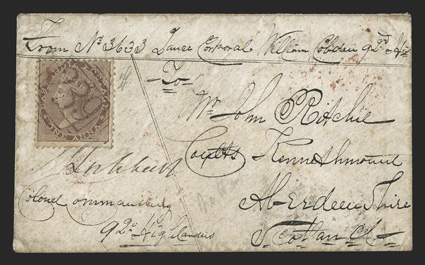 From No 3633 Lance Corporal William Cobden 92d Hrs
To
Mr John Ritchie
Coults Kennethmount
Aberdeen Shire
Scotland
Colonel Commanding
92d Highlanders